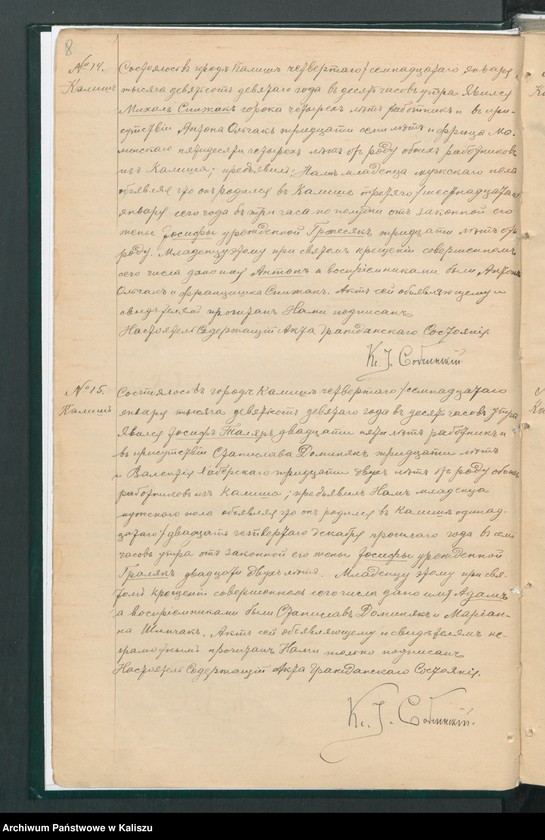 8
№ 14.
Калишъ
Состоялось въ городѣ Калишѣ четвертаго/семнадцатаго января
тысяча девятьсотъ девятаго года въ десять часовъ утра. Явился
Михалъ сорока четырехъ лѣтъ работникъ и въ при-
сутствіи Антона Ольчакъ тридцати семи лѣтъ и Франца
пятидесяти четырехъ лѣтъ отъ роду обоихъ работниковъ
изъ Калиша; предъявилъ Намъ младенца мужскаго пола
объявляя что онъ родился въ Калишѣ третяго/шестнадцатаго
января сего года въ три часа по полудни отъ законной его
жены Іосифы урожденной Гржесякъ тридцати лѣтъ отъ
роду. Младенцу этому при святомъ крещеніи совершенномъ
сего числа дано имя Антонъ а воспріемниками были Антонъ
Ольчакъ и Францишка. Актъ сей объявляющему и
свидѣтелямъ прочитанъ Нами подписанъ
Настоятель Содержащій Акты Гражданскаго Состоянія
Кс. І.
№ 15.
Калишъ
Состоялось въ городѣ Калишѣ четвертаго/семнадцатаго
января тысяча девятьсотъ девятаго года въ десять часовъ утра
Явился Іосифъ двадцати пяти лѣтъ работникъ и
въ присутствіи Станислава Доминякъ тридцати лѣтъ
и Валентія тридцати двухъ лѣтъ отъ роду обоихъ
работниковъ изъ Калиша; предъявилъ Намъ младенца
мужскаго пола объявляя что онъ родился въ Калишѣ одинад-
цатаго/двадцать четвертаго декабря прошлаго года въ семь
часовъ утра отъ законной его жены Іосифы урожденной
Гралякъ двадцати двухъ лѣтъ. Младенцу этому при свя-
томъ крещеніи совершенномъ сего числа дано имя Адамъ
а воспріемниками были Станиславъ Доминякъ и Маріан-
на. Актъ сей объявляющему и свидѣтелямъ не-
грамотнымъ прочитанъ Нами только подписанъ
Настоятель Содержащій Акты Гражданскаго Состоянія.
Кс. І.
Archiwum Państwowe w Kaliszu